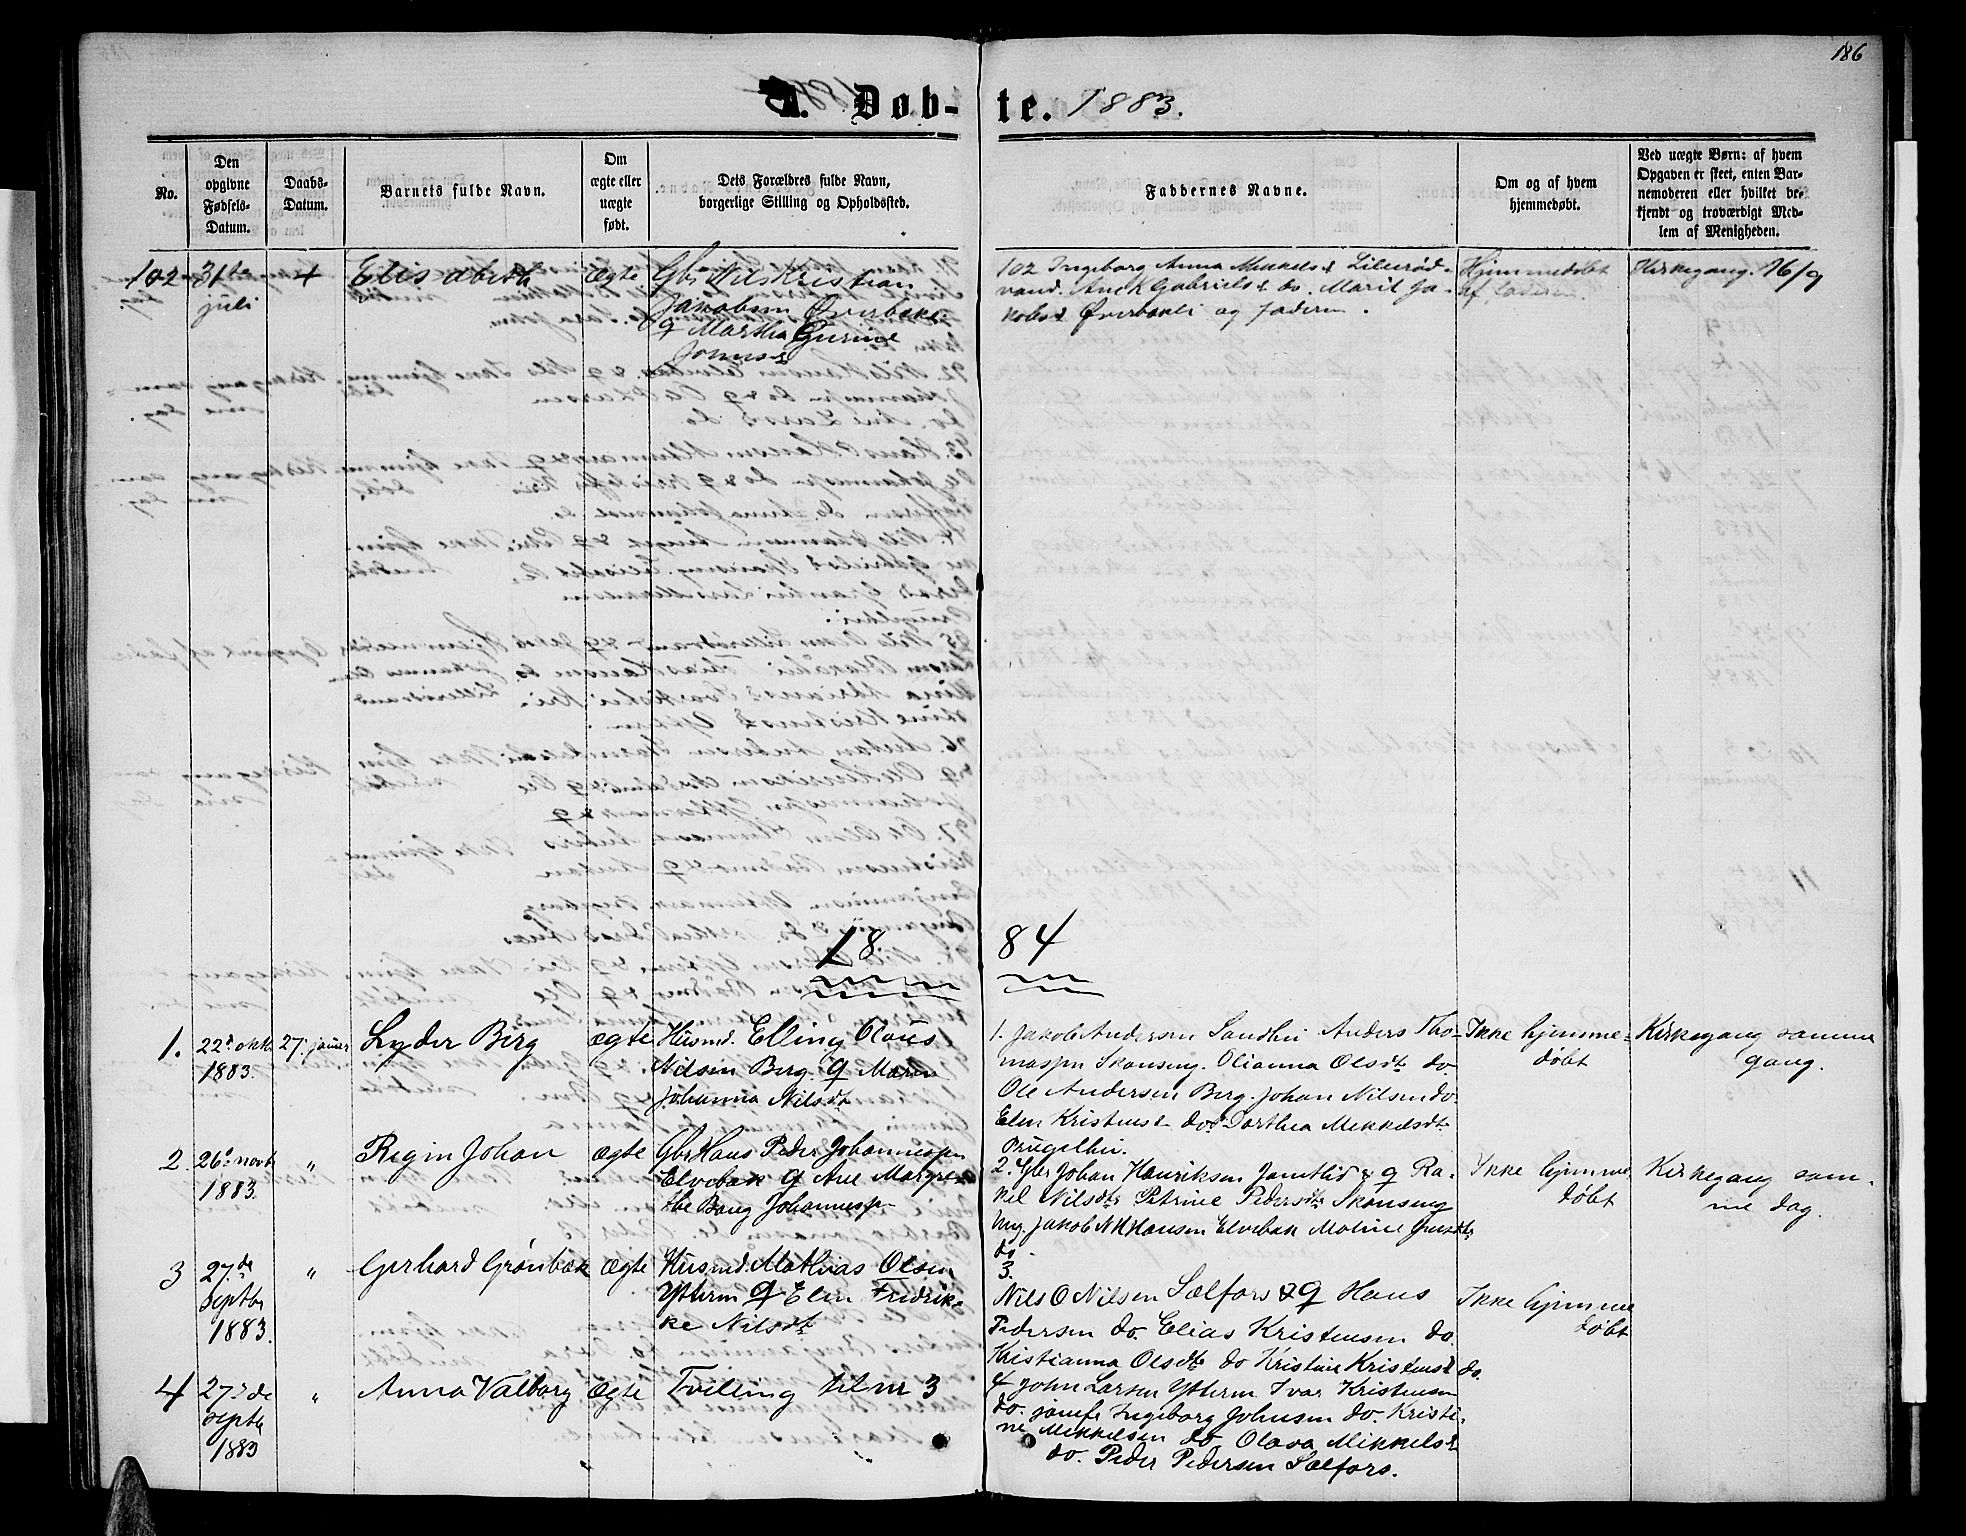 186
A. Døb-te. 1883.
No.
Den opgivne Fødsels-Datum.
Daabs-Datum.
Barnets fulde Navn.
Om ægte eller uægte født.
Dets Forældres fulde Navn, borgerlige Stilling og Opholdssted.
Faddernes Navne.
Om og af hvem hjemmedøbt.
Ved uægte Børn: af hvem Opgaven er skeet, enten Barnemoderen eller hvilket bekjendt og troværdigt Medlem af Menigheden.
102 31te juli
Elisabeth
ægte
Gbr Nils Kristian
Jakobsen Øverbakk.
& Martha Gurine
Johnsd
102 Ingeborg Anna Mikkelsd Lillerød-
vand. Gabrielsd do. Marit Ja-
kobsd Øverbakli og faderen.
Hjemmedøbt
af faderen.
Kirkegang 16/9
1884
1.
22d okt 1883.
27. januar
Lyder Berg
ægte
Husmd. Elling Olaus
Nilsen Berg & Maren
Johanna Nilsdt
1. Jakob Andersen Sandhei Anders Tho-
massen Skonseng. Olianna Olsdt do.
Ole Andersen Berg. Johan Nilsen do.
Elen Kristensd do. Dorthea Mikkelsdt
Prugelhei.
Ikke hjemme-
døbt
Kirkegang samme
gang.
2
26d novb 1883.
"
Regin Johan
ægte
Gbr Hans Peder Johannessen
Elvebak & Ane Margre-
the Bang Johannessen
2. Gbr Johan Henriksen Jamtlid & Q Ra-
kel Nilsdt. Petrine Pedersdt Skonseng
Ung. Jakob N Hansen Elvebak Moline
do.
Ikke hjemme
døbt
Kirkegang sam-
me dag.
3
27.de septbr 1883.
"
Gerhard Grønbæk
ægte
Husmd. Mathias Olsen
Ytterm & Elen Fredrik-
ke Nilsdt
3.
Nils O Nilsen Selfors & Q Hans
Pedersen do. Elias Kristensen do.
Kristianna Olsdt do Kristine Kristensd do.
Ikke hjemme
døbt
4
27.de septb 1883
"
Anna Valborg
ægte
Tvilling til nr 3
4 John Larsen Ytterm Ivar Kristensen
do. jomfr Ingeborg Johnsen do. Kristi-
ne Mikkelsen do Olava Mikkelsd
do. Peder Pedersen Selfors.